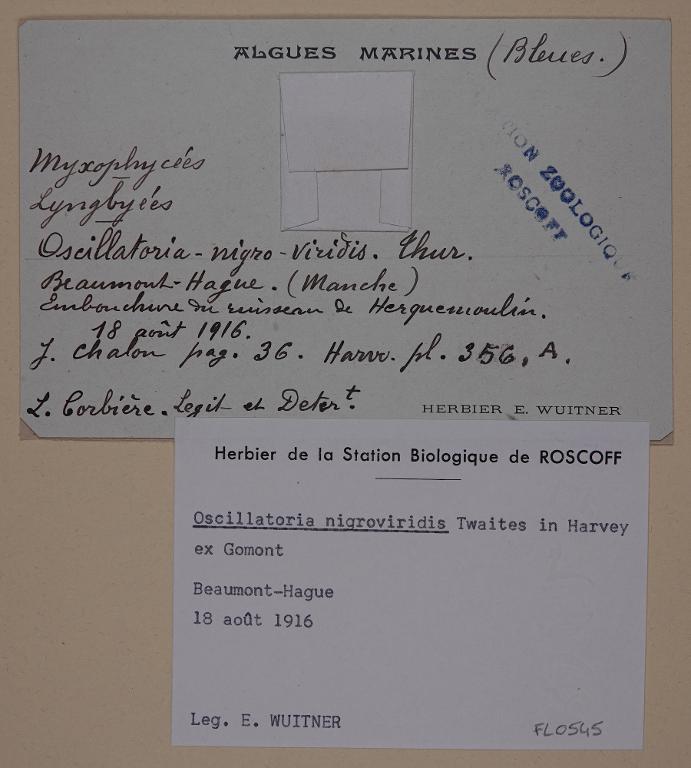 ALGUES MARINES (Bleues.)
ION ZOOLOGIQUE
ROSCOFF
Myxophycées
Lyngbyées
Oscillatoria-nigro-viridis. Thur.
Beaumont-Hague. (Manche)
Embouchure du ruisseau de Herquemoulin.
18 août 1916.
J. Chalon pag. 36. Harv. pl. 356, A.
L. Corbière. Legit et Deter.t
HERBIER E. WUITNER
Herbier de la Station Biologique de ROSCOFF
Oscillatoria nigroviridis Twaites in Harvey
ex Gomont
Beaumont-Hague
18 août 1916
Leg. E. WUITNER
FL0545